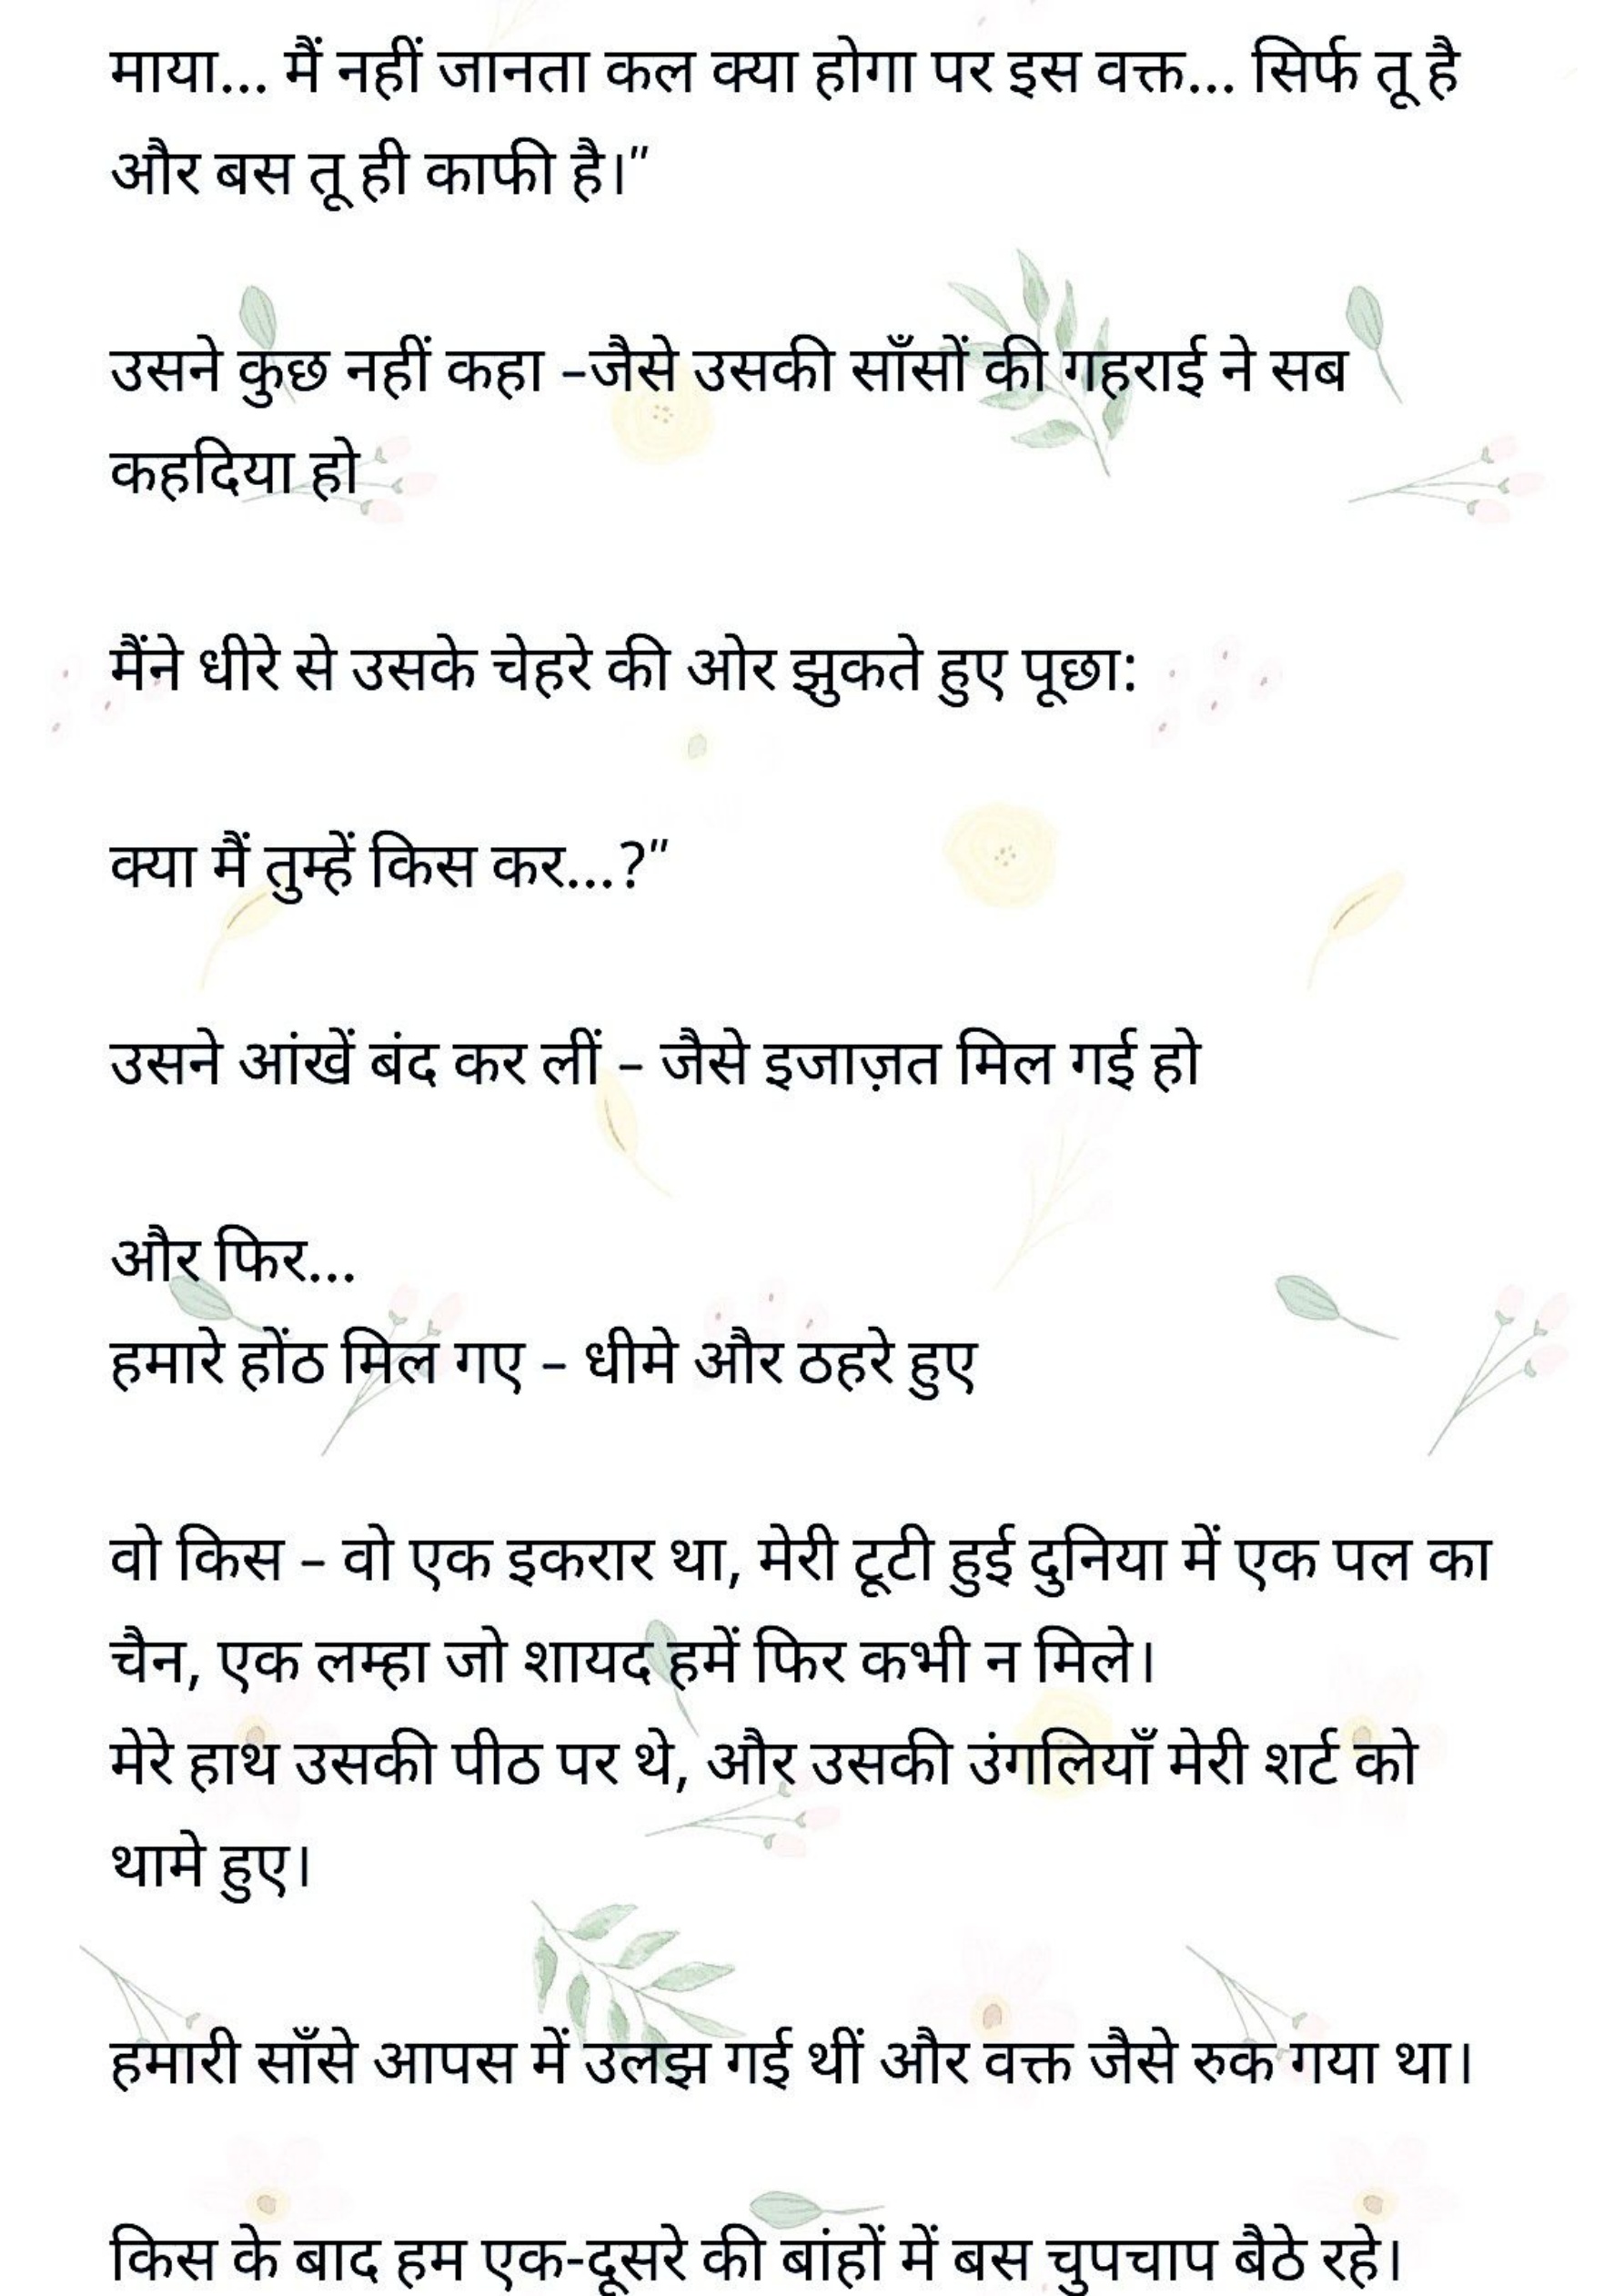 माया... मैं नहीं जानता कल क्या होगा पर इस वक्त... सिर्फ तू है
और बस तू ही काफी है।”
उसने कुछ नहीं कहा –जैसे उसकी साँसों की गहराई ने सब
कहदिया हो
मैंने धीरे से उसके चेहरे की ओर झुकते हुए पूछा:
क्या मैं तुम्हें किस कर...?”
उसने आंखें बंद कर लीं – जैसे इजाज़त मिल गई हो
और फिर...
हमारे होंठ मिल गए – धीमे और ठहरे हुए
वो किस – वो एक इकरार था, मेरी टूटी हुई दुनिया में एक पल का
चैन, एक लम्हा जो शायद हमें फिर कभी न मिले।
मेरे हाथ उसकी पीठ पर थे, और उसकी उंगलियाँ मेरी शर्ट को
थामे हुए।
हमारी साँसे आपस में उलझ गई थीं और वक्त जैसे रुक गया था।
किस के बाद हम एक-दूसरे की बांहों में बस चुपचाप बैठे रहे।